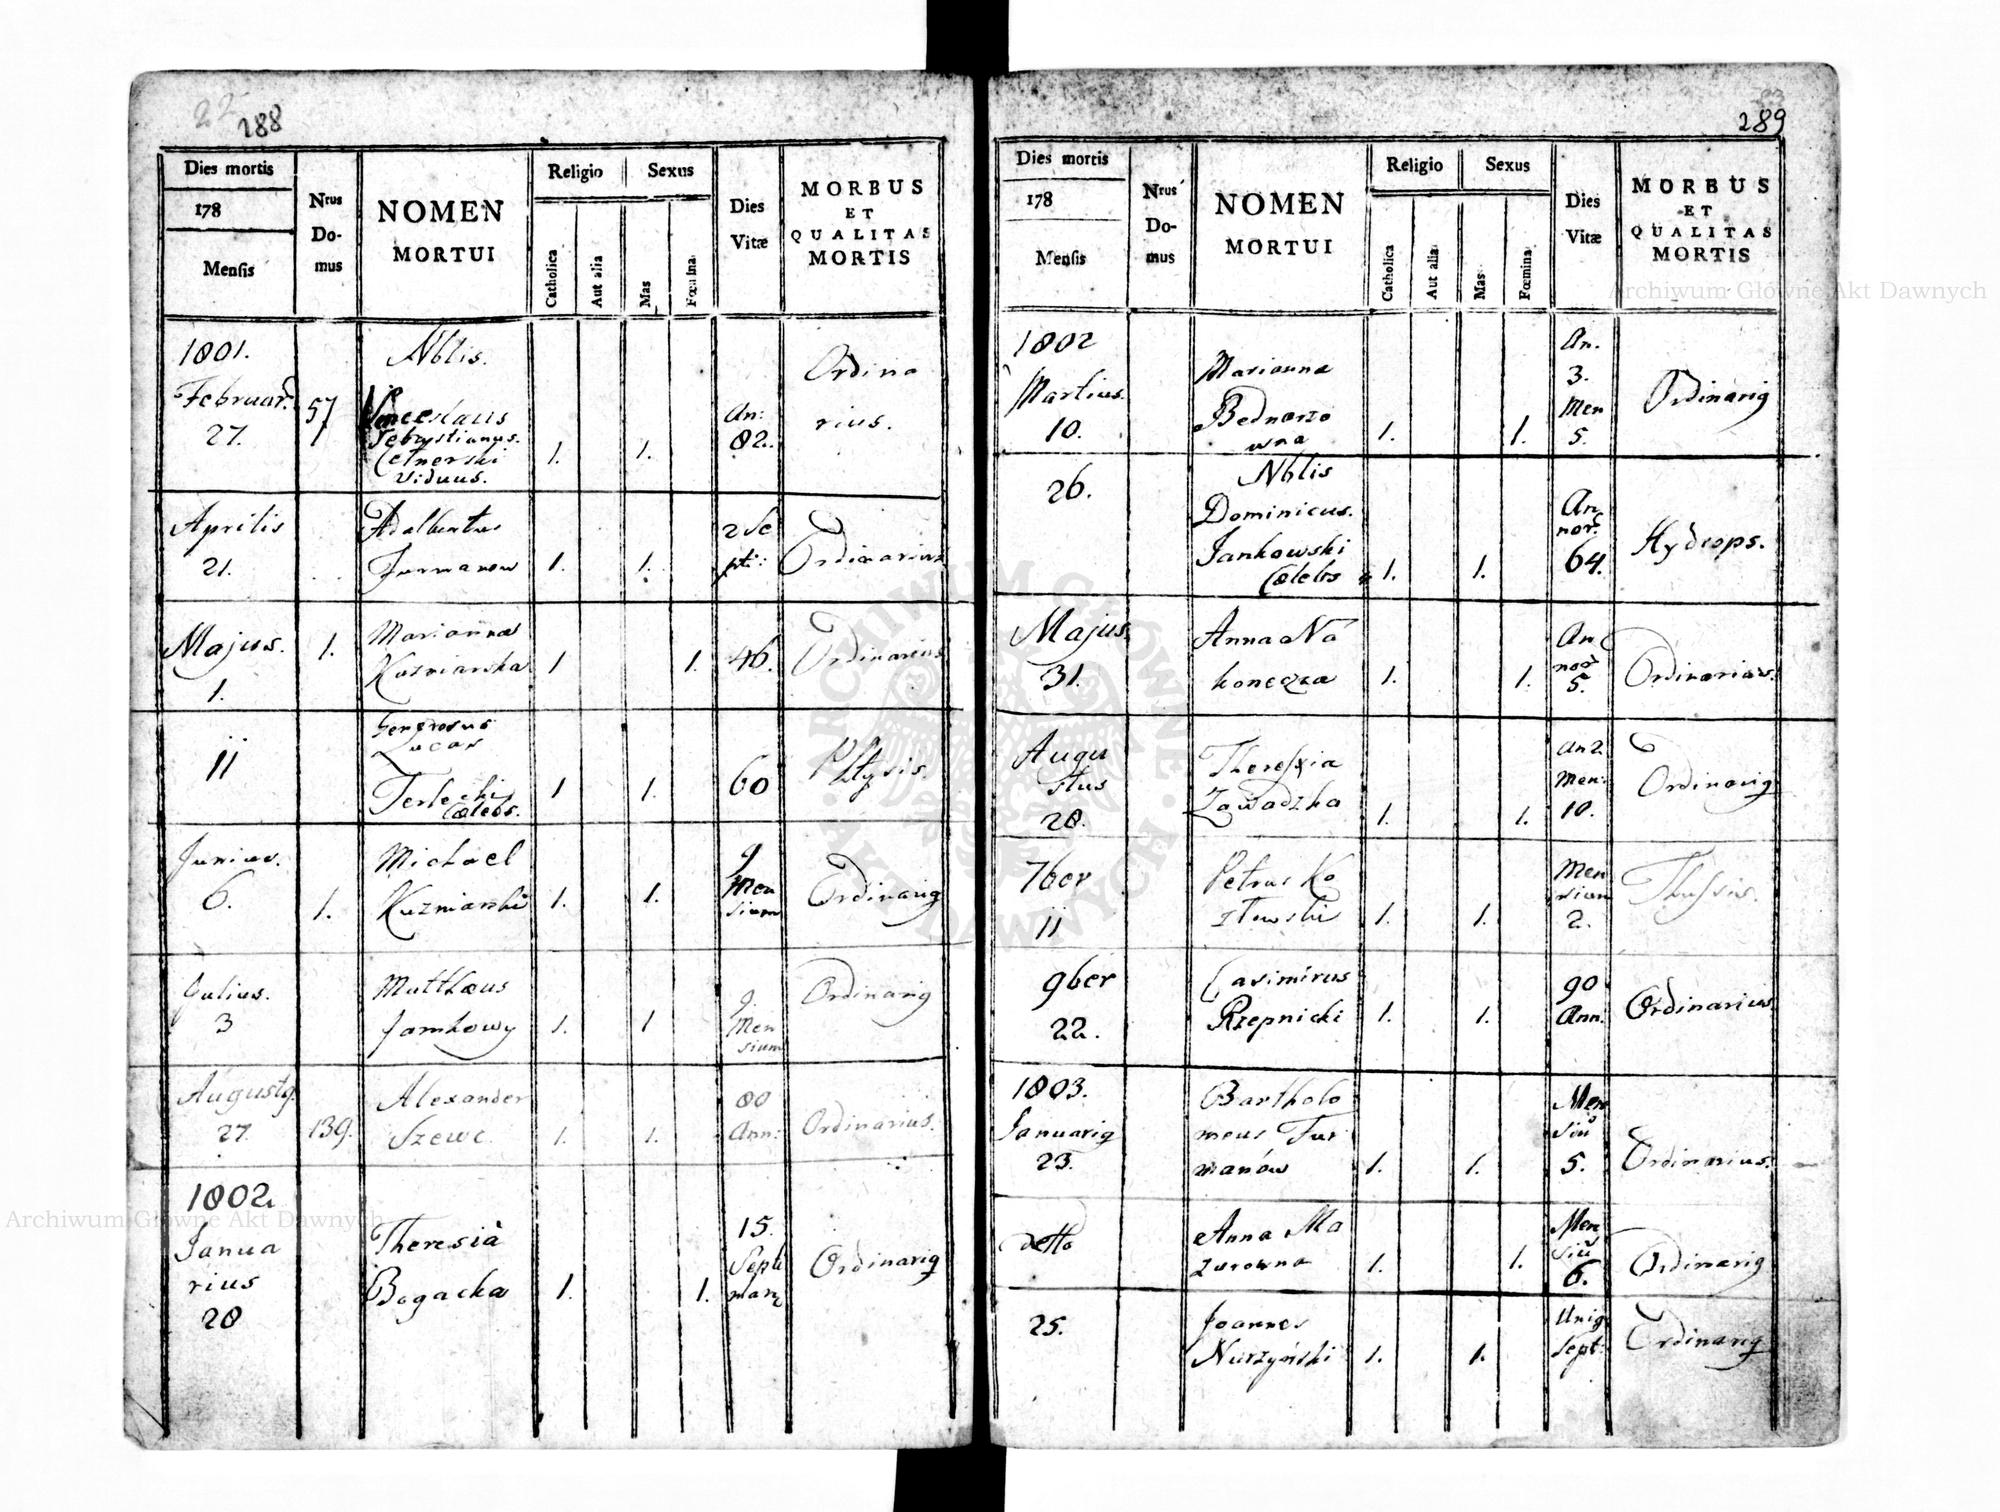 22
288
Dies mortis
178
Mensis
Nrus Do-mus
NOMEN
MORTUI
Religio
Sexus
Catholica
Aut alia
Mas
Fœmina
Dies
Vitæ
MORBUS
ET
QUALITAS
MORTIS
1801.
Februar.
27.
57
Nblis.
Venceslaus
Sebastianus.
Cetnerski
Viduus.
1.
1.
An:
82.
Ordina
rius.
Aprilis
21.
Adalbertus
Furmanow
1.
1.
2 Se
pti:
Ordinarius
Majus.
1.
1.
Marianna
Kuzniarska
1
1.
46.
Ordinarius
11
Generosus
Lucas
Terlecki
Cœlebs.
1
1.
60
Phtysis.
Junius.
6.
1.
Michael
Kuzniarski
1.
1.
9
Men
sium
Ordinarig
Julius.
3
Matthæus
Jamkowy
1.
1
9.
Men
sium
Ordinarig
Augustg.
27.
139.
Alexander
Szewc
1.
1.
80
Ann:
Ordinarius.
1802.
Janua
rius
28
Theresia
Bogacka
1.
1.
15.
Septi
man
Ordinarig
289
Dies mortis
178
Mensis
Nrus Do-mus
NOMEN
MORTUI
Religio
Sexus
Catholica
Aut alia
Mas
Fœmina
Dies
Vitæ
MORBUS
ET
QUALITAS
MORTIS
1802
Martius.
10.
Marianna
Bednarzo
wna
1.
1.
An.
3.
Men
5.
Ordinarig
26.
Nblis
Dominicus.
Jankowski
Cœlebs
1.
1.
An
nor.
64.
Hydrops.
Majus.
31.
Anna Na
koneczna
1.
1.
An
nor
5.
Ordinarius.
Augu
stus
28.
Theressia
Zawadzka
1.
1.
An 2.
Men:
10.
Ordinarig
7ber
11
Petrus Ko
złowski
1.
1.
Men
sium
2.
Thussis.
9ber
22.
Casimirus
Rzepnicki
1.
1.
90
Ann.
Ordinarius
1803.
Januarig
23.
Bartholo
meus Fur
manów
1.
1.
Men
siu
5.
Ordinarius.
detto
Anna Ma
zurowna
1.
1.
Men
siu
6.
Ordinarig
25.
Joannes
Nurzyński
1.
1.
Unig
Sept:
Ordinarig
Archiwum Główne Akt Dawnych
Archiwum Główne Akt Dawnych
ARCHIWUM GŁÓWNE AKT DAWNYCH